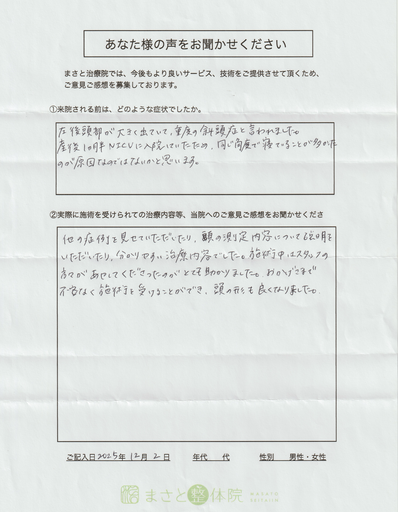 あなた様の声をお聞かせください
まさと治療院では、今後もより良いサービス、技術をご提供させて頂くため、
ご意見ご感想を募集しております。
①来院される前は、どのような症状でしたか。
左後頭部が大きく出ていて、重度の斜頭症と言われました。
産後1ヶ月半NICUに入院していたため、同じ角度で寝ていることが多かった
のが原因なのではないかと思います。
②実際に施術を受けられての治療内容等、当院へのご意見ご感想をお聞かせくださ
他の症例を見せていただいたり、頭の測定内容について説明を
いただいたり、分かりやすい治療内容でした。施術中はスタッフの
方々があやしてくださったのがとても助かりました。おかげさまで
不安なく施術を受けることができ、頭の形も良くなりました。
ご記入日2025年12月2日 年代 代 性別 男性・女性
まさと整体院